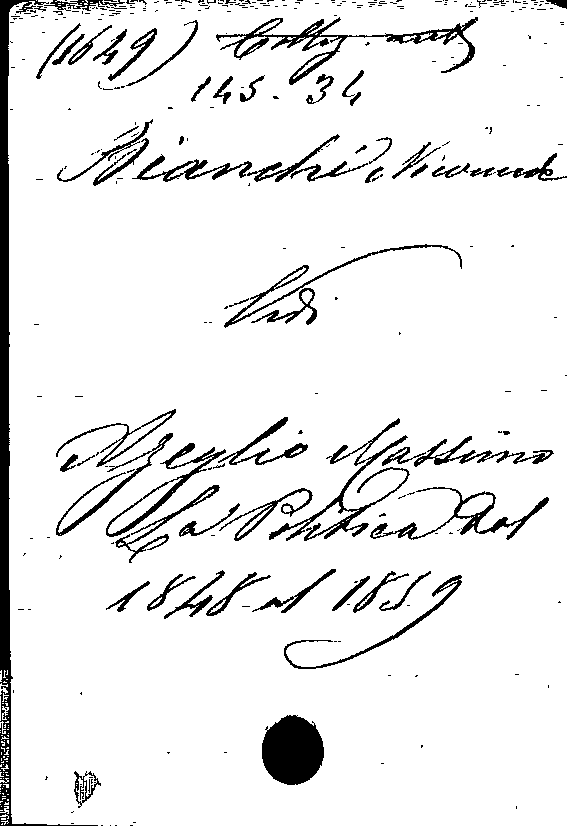 (1649)
145. 34
Bianchi, Nicomede
Vedi
Azeglio Massimo
La Politica dal
1848 al 1859